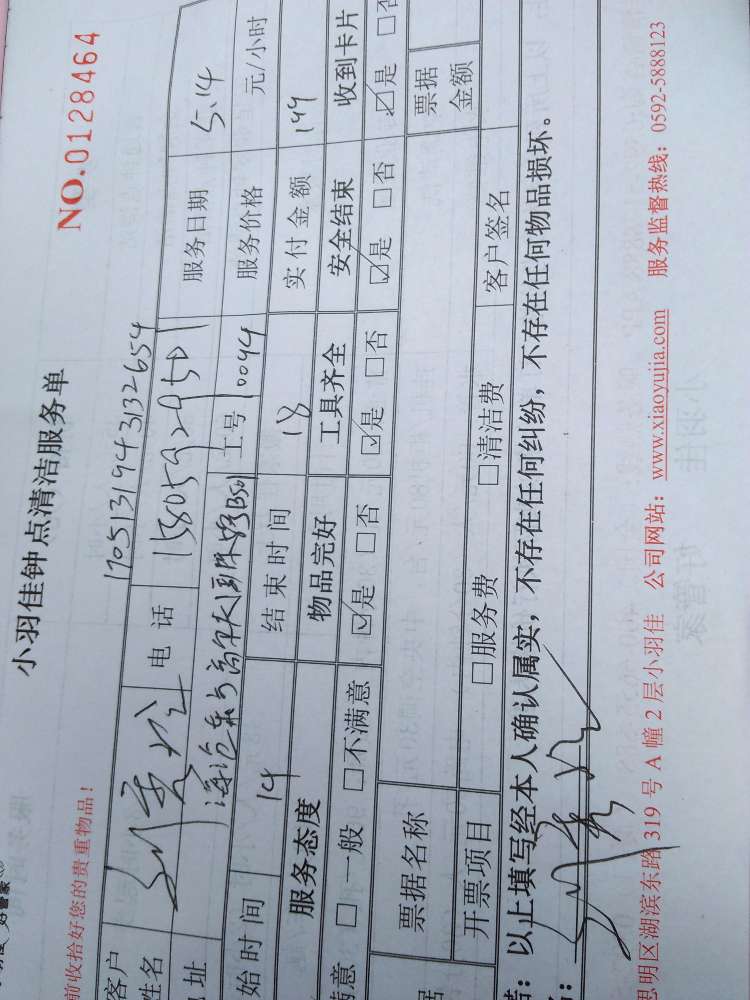 小羽佳钟点清洁服务单
NO.0128464
前收拾好您的贵重物品!
1705131943132654
客户姓名 电话 服务日期 5.14
地址 工号 10094 服务价格 元/小时
始时间 14 结束时间 18 实付金额 149
服务态度 物品完好 工具齐全 安全结束 收到卡片
满意 □一般 □不满意 ☑是 □否 ☑是 □否 ☑是 □否 ☑是 □否
票据名称 票据金额
开票项目 □服务费 □清洁费 客户签名
以上填写经本人确认属实,不存在任何纠纷,不存在任何物品损坏。
思明区湖滨东路 319 号 A 幢 2 层小羽佳 公司网站: www.xiaoyujia.com 服务监督热线: 0592-5888123